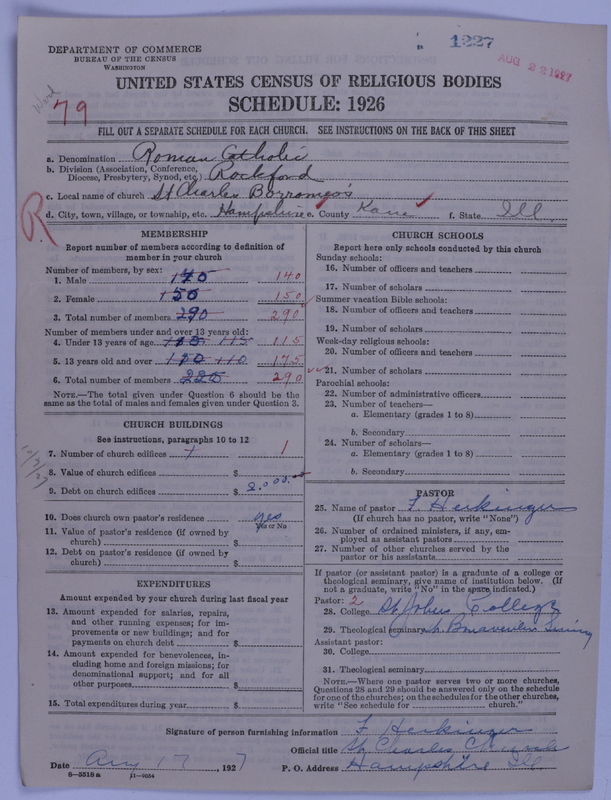 DEPARTMENT OF COMMERCE
BUREAU OF THE CENSUS
WASHINGTON
1227
AUG 22 1927
79
UNITED STATES CENSUS OF RELIGIOUS BODIES
SCHEDULE: 1926
FILL OUT A SEPARATE SCHEDULE FOR EACH CHURCH. SEE INSTRUCTIONS ON THE BACK OF THIS SHEET
a. Denomination Roman Catholic
b. Division (Association, Conference, Diocese, Presbytery, Synod, etc.) Rockford
c. Local name of church St Charles Borromeo's
d. City, town, village, or township, etc. Hampshire e. County Kane f. State Ill.
R.
MEMBERSHIP
Report number of members according to definition of
member in your church
Number of members, by sex:
1. Male 140
2. Female 150 150
3. Total number of members 290 290
Number of members under and over 13 years old:
4. Under 13 years of age 115 115
5. 13 years old and over 110 175
6. Total number of members 225 290
NOTE.—The total given under Question 6 should be the
same as the total of males and females given under Question 3.
CHURCH BUILDINGS
See instructions, paragraphs 10 to 12
7. Number of church edifices 1 1
8. Value of church edifices $
9. Debt on church edifices $
10. Does church own pastor's residence yes
Yes or No
11. Value of pastor's residence (if owned by
church) $
12. Debt on pastor's residence (if owned by
church) $
EXPENDITURES
Amount expended by your church during last fiscal year
13. Amount expended for salaries, repairs,
and other running expenses; for im-
provements or new buildings; and for
payments on church debt $
14. Amount expended for benevolences, in-
cluding home and foreign missions; for
denominational support; and for all
other purposes $
15. Total expenditures during year $
CHURCH SCHOOLS
Report here only schools conducted by this church
Sunday schools:
16. Number of officers and teachers
17. Number of scholars
Summer vacation Bible schools:
18. Number of officers and teachers
19. Number of scholars
Week-day religious schools:
20. Number of officers and teachers
21. Number of scholars
Parochial schools:
22. Number of administrative officers
23. Number of teachers—
a. Elementary (grades 1 to 8)
b. Secondary
24. Number of scholars—
a. Elementary (grades 1 to 8)
b. Secondary
PASTOR
25. Name of pastor F Herkinger
(If church has no pastor, write "None")
26. Number of ordained ministers, if any, em-
ployed as assistant pastors
27. Number of other churches served by the
pastor or his assistants
If pastor (or assistant pastor) is a graduate of a college or
theological seminary, give name of institution below. (If
not a graduate, write "No" in the space indicated.)
Pastor: 2
28. College St Johns College
29. Theological seminary
Assistant pastor:
30. College
31. Theological seminary
NOTE.—Where one pastor serves two or more churches,
Questions 28 and 29 should be answered only on the schedule
for one of the churches; on the schedules for the other churches,
write "See schedule for church."
Signature of person furnishing information F Herkinger
Official title St Charles Church
Date Aug 17, 1927 P. O. Address Hampshire Ill
8—5518a 11—9034